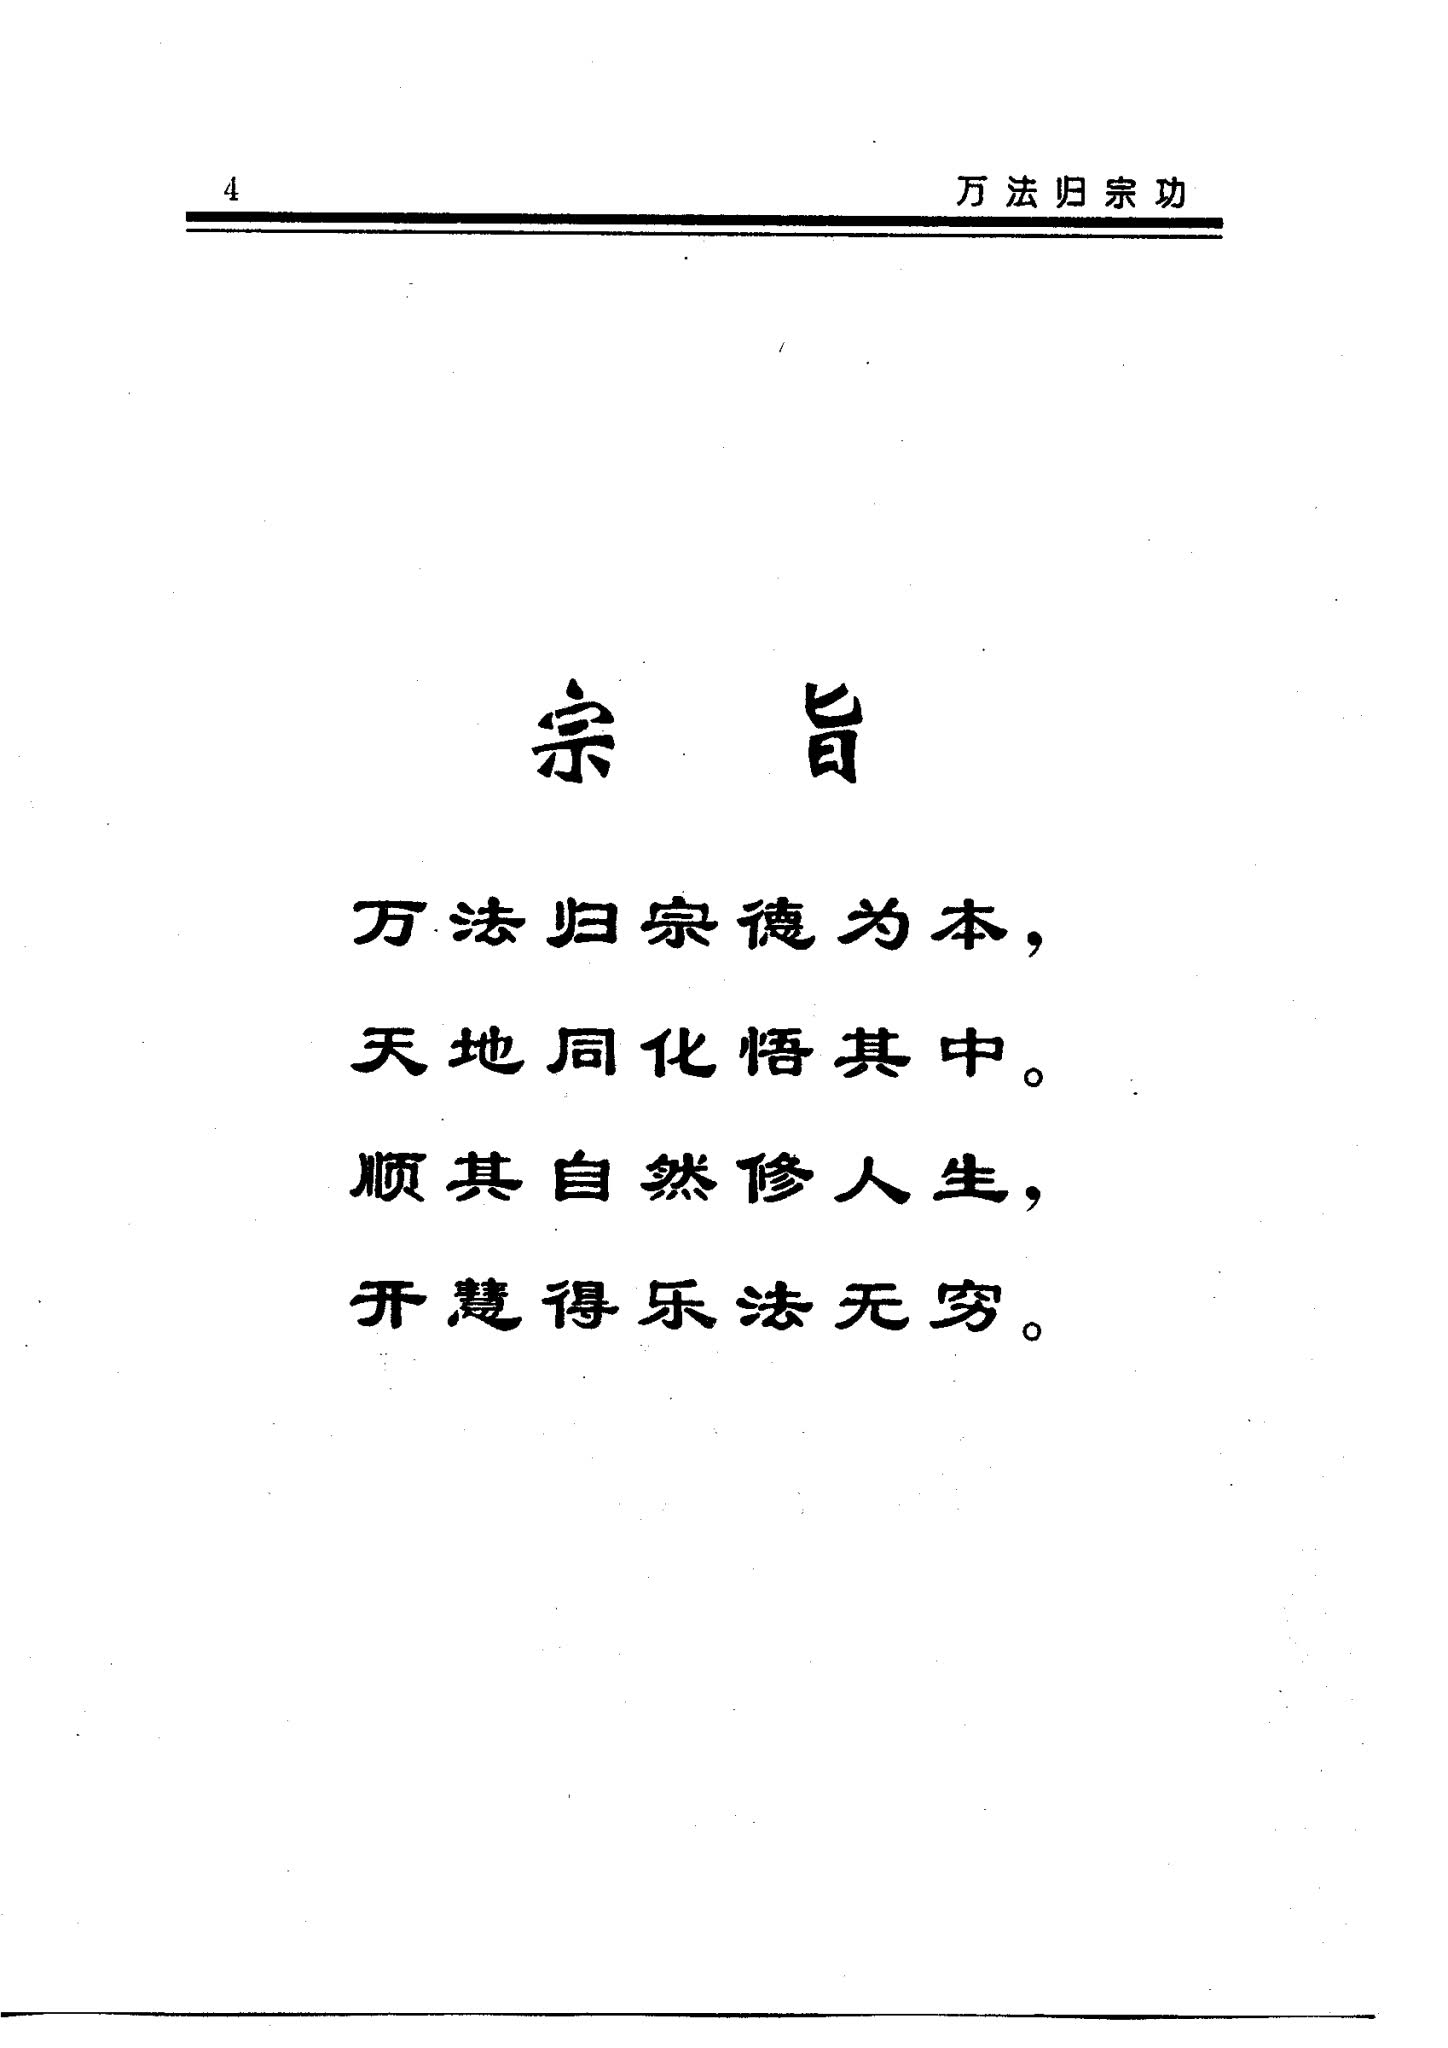 4 万法归宗功
宗 旨
万法归宗德为本，
天地同化悟其中。
顺其自然修人生，
开慧得乐法无穷。